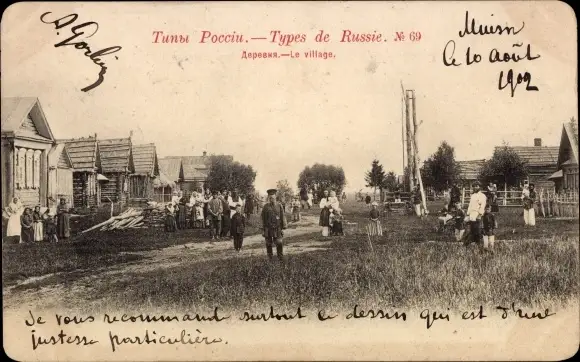 Типы Россіи.—Types de Russie. № 69
Деревня.—Le village.
Ce 10 août
1902
Je vous recommand surtout le dessin qui est d'une
justesse particulière.